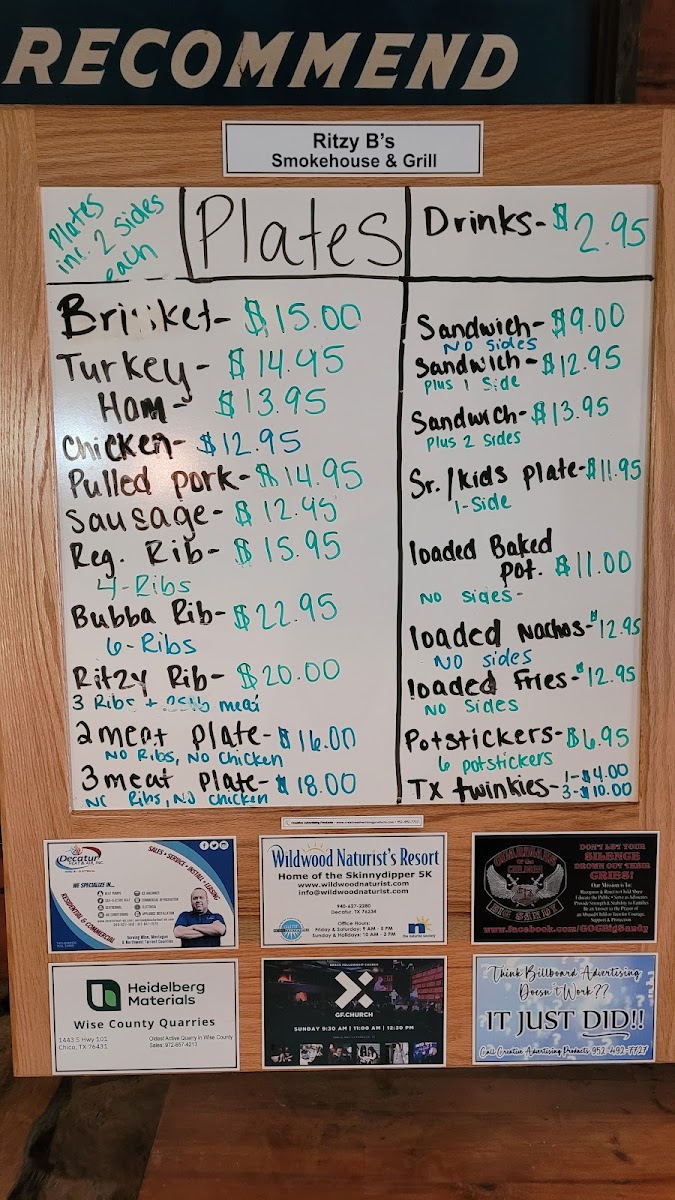 RECOMMEND
Ritzy B's
Smokehouse & Grill
Plates
inc. 2 sides
each
Plates
Brisket- $15.00
Turkey- $14.95
Ham- $13.95
Chicken- $12.95
Pulled pork- $14.95
Sausage- $12.95
Reg. Rib- $15.95
4-Ribs
Bubba Rib- $22.95
6-Ribs
Ritzy Rib- $20.00
3 Ribs + meat
2 meat plate- $16.00
No Ribs, No Chicken
3 meat plate- $18.00
No Ribs, No Chicken
Drinks- $2.95
Sandwich- $9.00
No Sides
Sandwich- $12.95
Plus 1 Side
Sandwich- $13.95
Plus 2 Sides
Sr./kids plate- $11.95
1-Side
loaded Baked
pot. $11.00
No sides-
loaded Nachos- $12.95
No sides
loaded Fries- $12.95
No Sides
Potstickers- $6.95
6 potstickers
TX twinkies- 1- $4.00
3- $10.00
Decatur
HEAT & AIR, INC.
SALES • SERVICE • INSTALL • LEASING
WE SPECIALIZE IN...
RESIDENTIAL & COMMERCIAL
Serving Wise, Montague
& Northwest Tarrant Counties
Wildwood Naturist's Resort
Home of the Skinnydipper 5K
www.wildwoodnaturist.com
info@wildwoodnaturist.com
940-627-2280
Decatur, TX 76234
Office Hours:
Friday & Saturday: 9 AM - 8 PM
Sunday & Holidays: 10 AM - 2 PM
GUARDIANS
OF THE
CHILDREN
BIG SANDY
DON'T LET YOUR
SILENCE
DROWN OUT THEIR
CRIES!
Our Mission is To:
Recognize & React to Child Abuse
Educate the Public • Serve as Advocates
Provide Strength & Stability to Families
Be an Answer to the Prayer of
an Abused Child or Teen for Courage,
Support & Protection
www.facebook.com/GOCBigSandy
Heidelberg
Materials
Wise County Quarries
1443 S Hwy 101
Chico, TX 76431
Oldest Active Quarry in Wise County
Sales: 972-657-4213
GF.CHURCH
SUNDAY 9:30 AM | 11:00 AM | 12:30 PM
Think Billboard Advertising
Doesn't Work??
IT JUST DID!!
Call Creative Advertising Products 952-492-7727